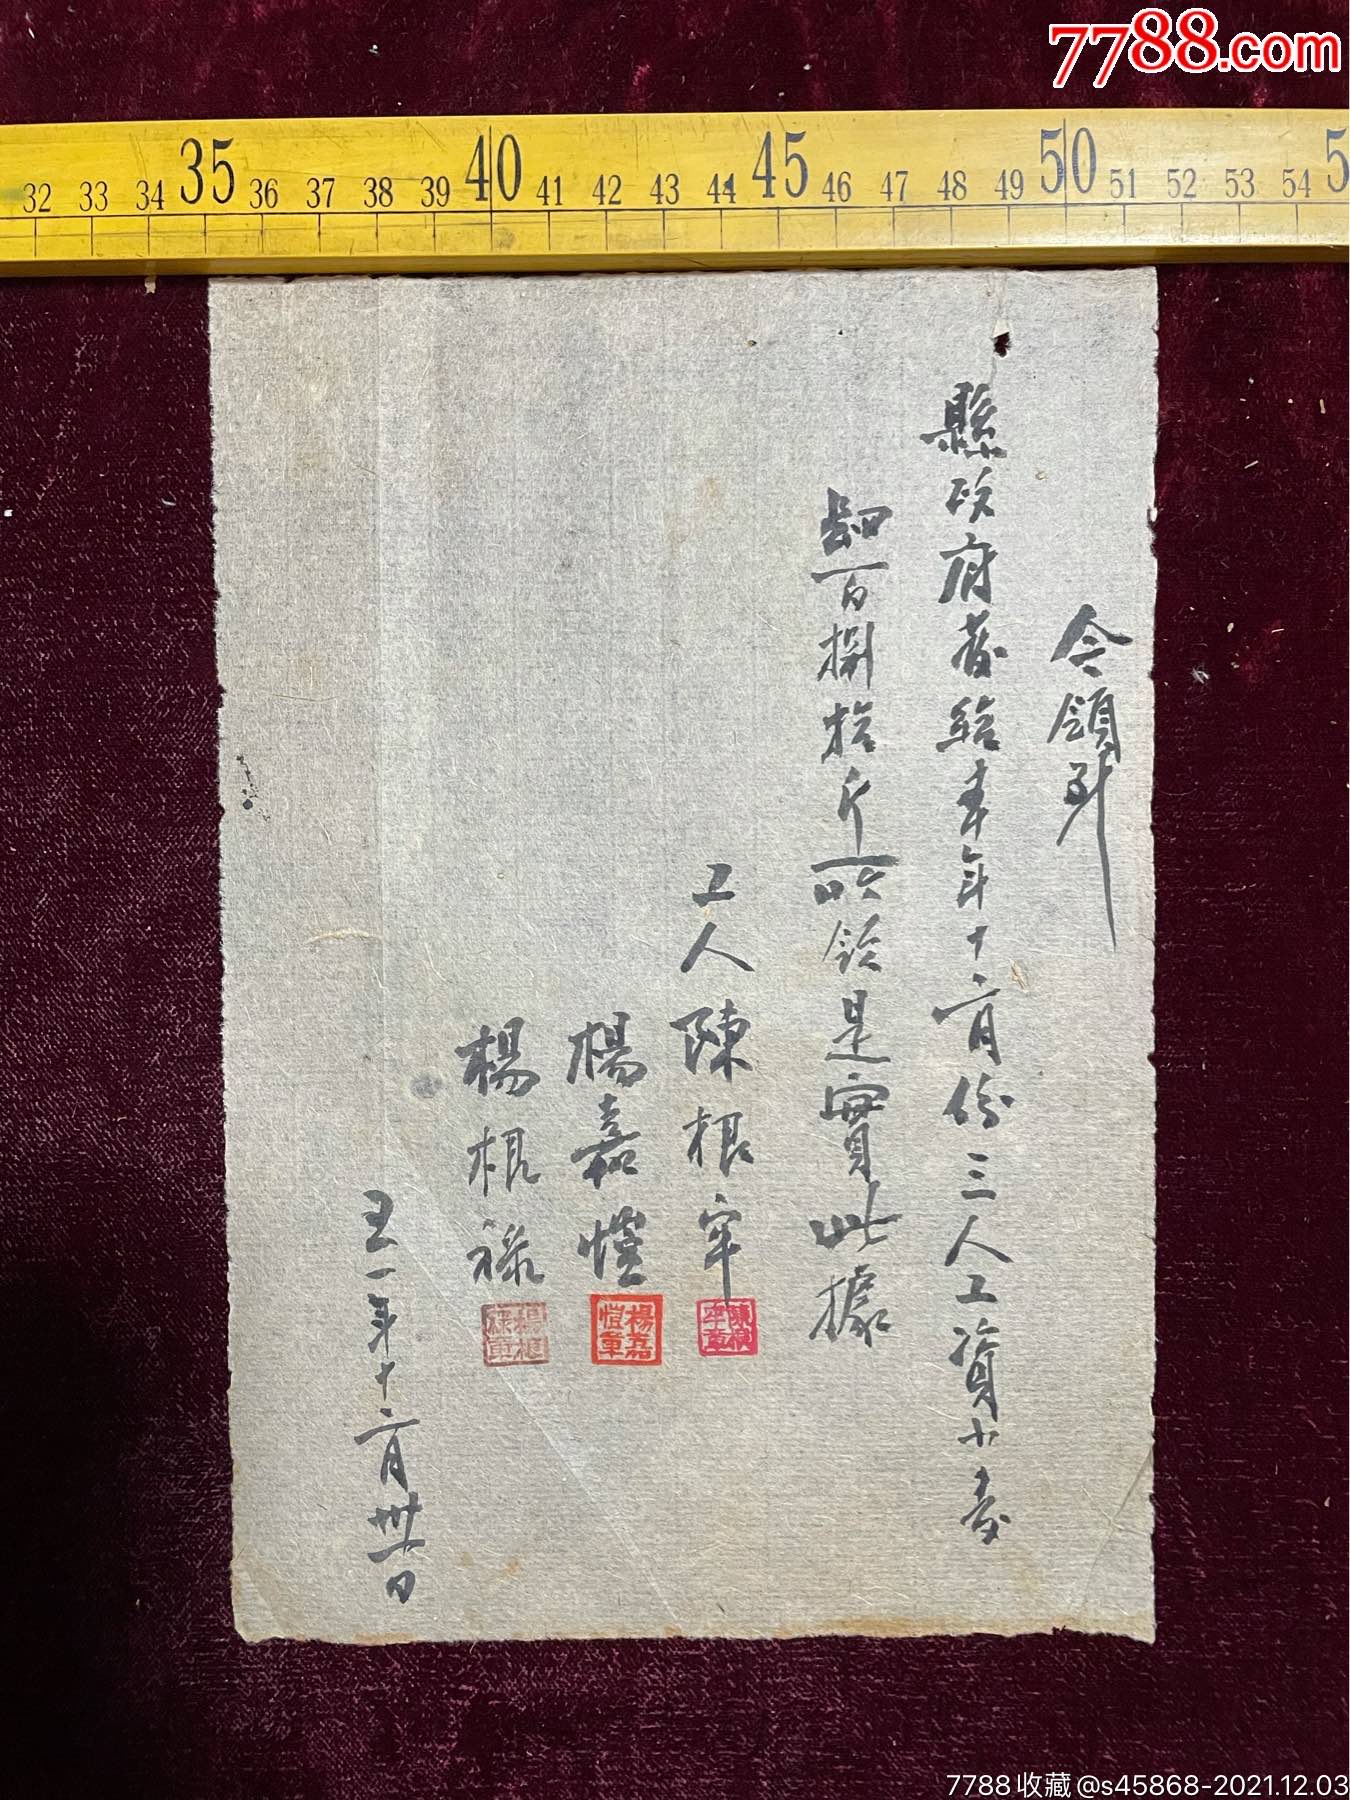 7788.com
32 33 34 35 36 37 38 39 40 41 42 43 44 45 46 47 48 49 50 51 52 53 54 5
今領到
縣政府發給本年十二月份三人工資小麥
肆百捌拾斤所領是實此據
工人 陳根牢
楊嘉愷
楊根祿
五一年十二月卅一日
陳根牢章
楊嘉愷章
楊根祿章
7788收藏@s45868-2021.12.03